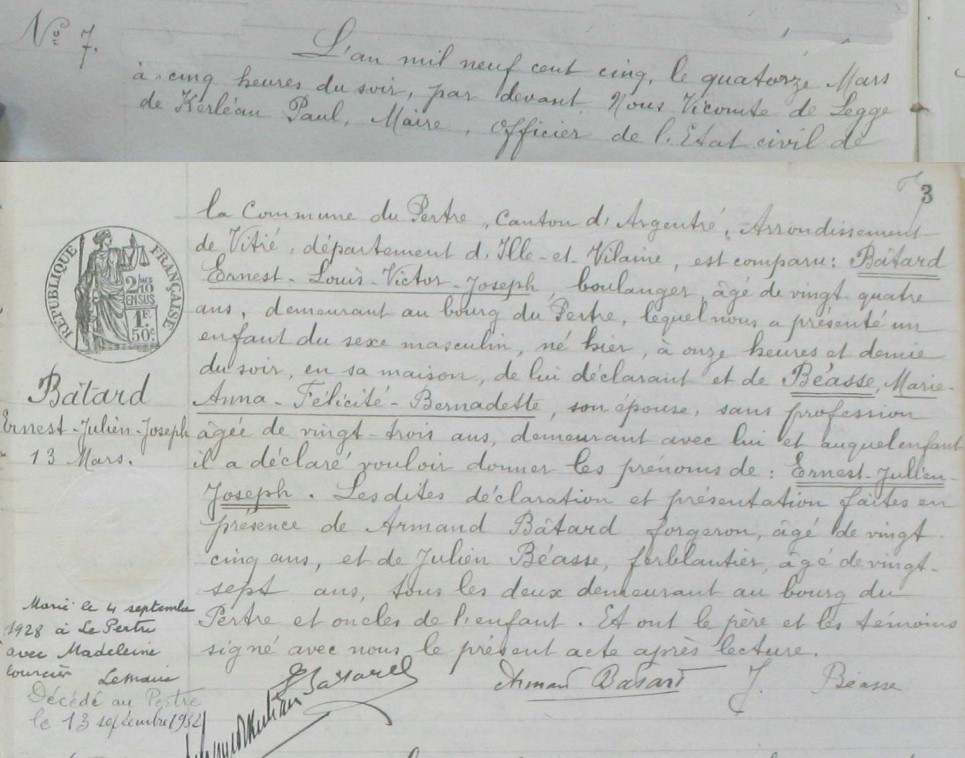 No 7.
L'an mil neuf cent cinq, le quatorze Mars
à cinq heures du soir, par devant Nous Vicomte de Legge
de Kerléau Paul, Maire, officier de l'Etat civil de
3
la Commune du Pertre, Canton d'Argentré, Arrondissement
de Vitré, département d'Ille-et Vilaine, est comparu: Bâtard
Ernest-Louis-Victor-Joseph, boulanger, âgé de vingt-quatre
ans, demeurant au bourg du Pertre, lequel nous a présenté un
enfant du sexe masculin, né hier, à onze heures et demie
du soir, en sa maison, de lui déclarant et de Béasse, Marie-
Anna-Félicité-Bernadette, son épouse, sans profession
âgée de vingt-trois ans, demeurant avec lui et auquel enfant
il a déclaré vouloir donner les prénoms de: Ernest-Julien-
Joseph. Lesdites déclaration et présentation faites en
présence de Armand Bâtard forgeron, âgé de vingt-
cinq ans, et de Julien Béasse, ferblantier, âgé de vingt-
sept ans, tous les deux demeurant au bourg du
Pertre et oncles de l'enfant. Et ont le père et les témoins
signé avec nous le présent acte après lecture.
Armand Batard
J. Béasse
RÉPUBLIQUE FRANÇAISE
2 10
EN SUS
1F
50c
Bâtard
Ernest-Julien-Joseph
13 Mars.
Marié le 4 septembre
1928 à Le Pertre
avec Madeleine
Le Maire
Décédé au Pertre
le 13 septembre 1982